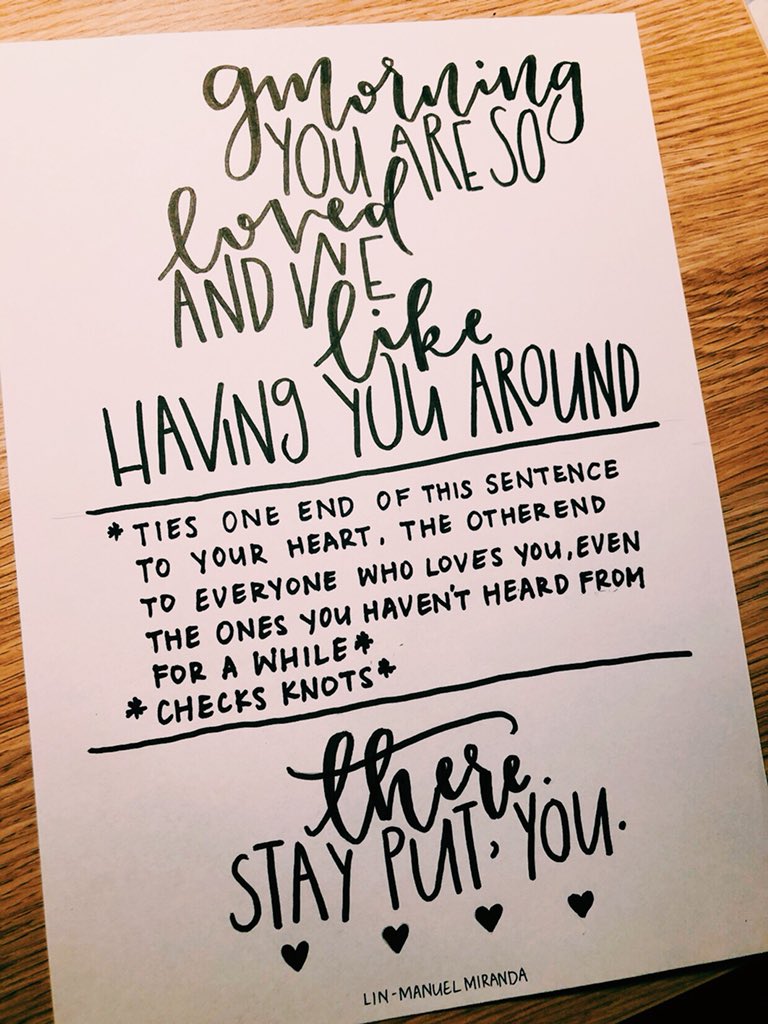 gmorning
YOU ARE SO
loved
AND WE
like
HAVING YOU AROUND
*TIES ONE END OF THIS SENTENCE
TO YOUR HEART, THE OTHER END
TO EVERYONE WHO LOVES YOU, EVEN
THE ONES YOU HAVEN'T HEARD FROM
FOR A WHILE*
*CHECKS KNOTS*
there.
STAY PUT, YOU.
LIN-MANUEL MIRANDA